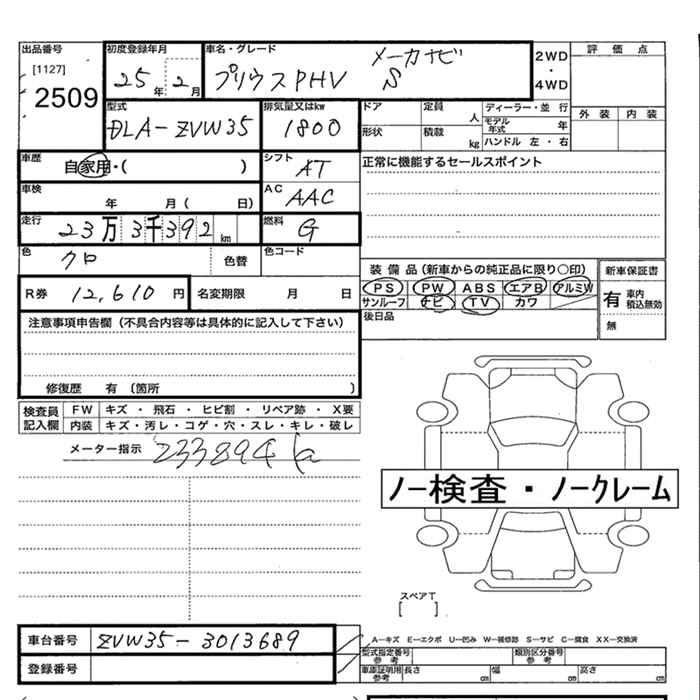 出品番号
[1127]
2509
初度登録年月
25年 2月
車名・グレード
メーカナビ
プリウスPHV S
2WD
・
4WD
評価点
外装 内装
型式
DLA-ZVW35
排気量又はkw
1800
ドア 定員 人
ディーラー・並行
モデル年式 年
形状 積載 kg
ハンドル 左・右
車歴
自家用・( )
シフト
AT
正常に機能するセールスポイント
車検
年 月( 日)
AC
AAC
走行
23万3千392km
燃料
G
色
クロ
色替
色コード
装備品(新車からの純正品に限り○印)
新車保証書
PS PW ABS エアB アルミW
サンルーフ ナビ TV カワ
有 車内積込無効
無
R券 12,610円
名変期限 月 日
後日品
注意事項申告欄(不具合内容等は具体的に記入して下さい)
修復歴 有 (箇所 )
検査員記入欄
FW キズ・飛石・ヒビ割・リペア跡・X要
内装 キズ・汚レ・コゲ・穴・スレ・キレ・破レ
メーター指示 233894
ノー検査・ノークレーム
スペアT
[ ]
車台番号 ZVW35-3013689
登録番号
A―キズ E―エクボ U―凹み W―補修跡 S―サビ C―腐食 XX―交換済
型式指定番号 参考
類別区分番号 参考
車庫証明用 参考 長さ cm 幅 cm 高さ cm